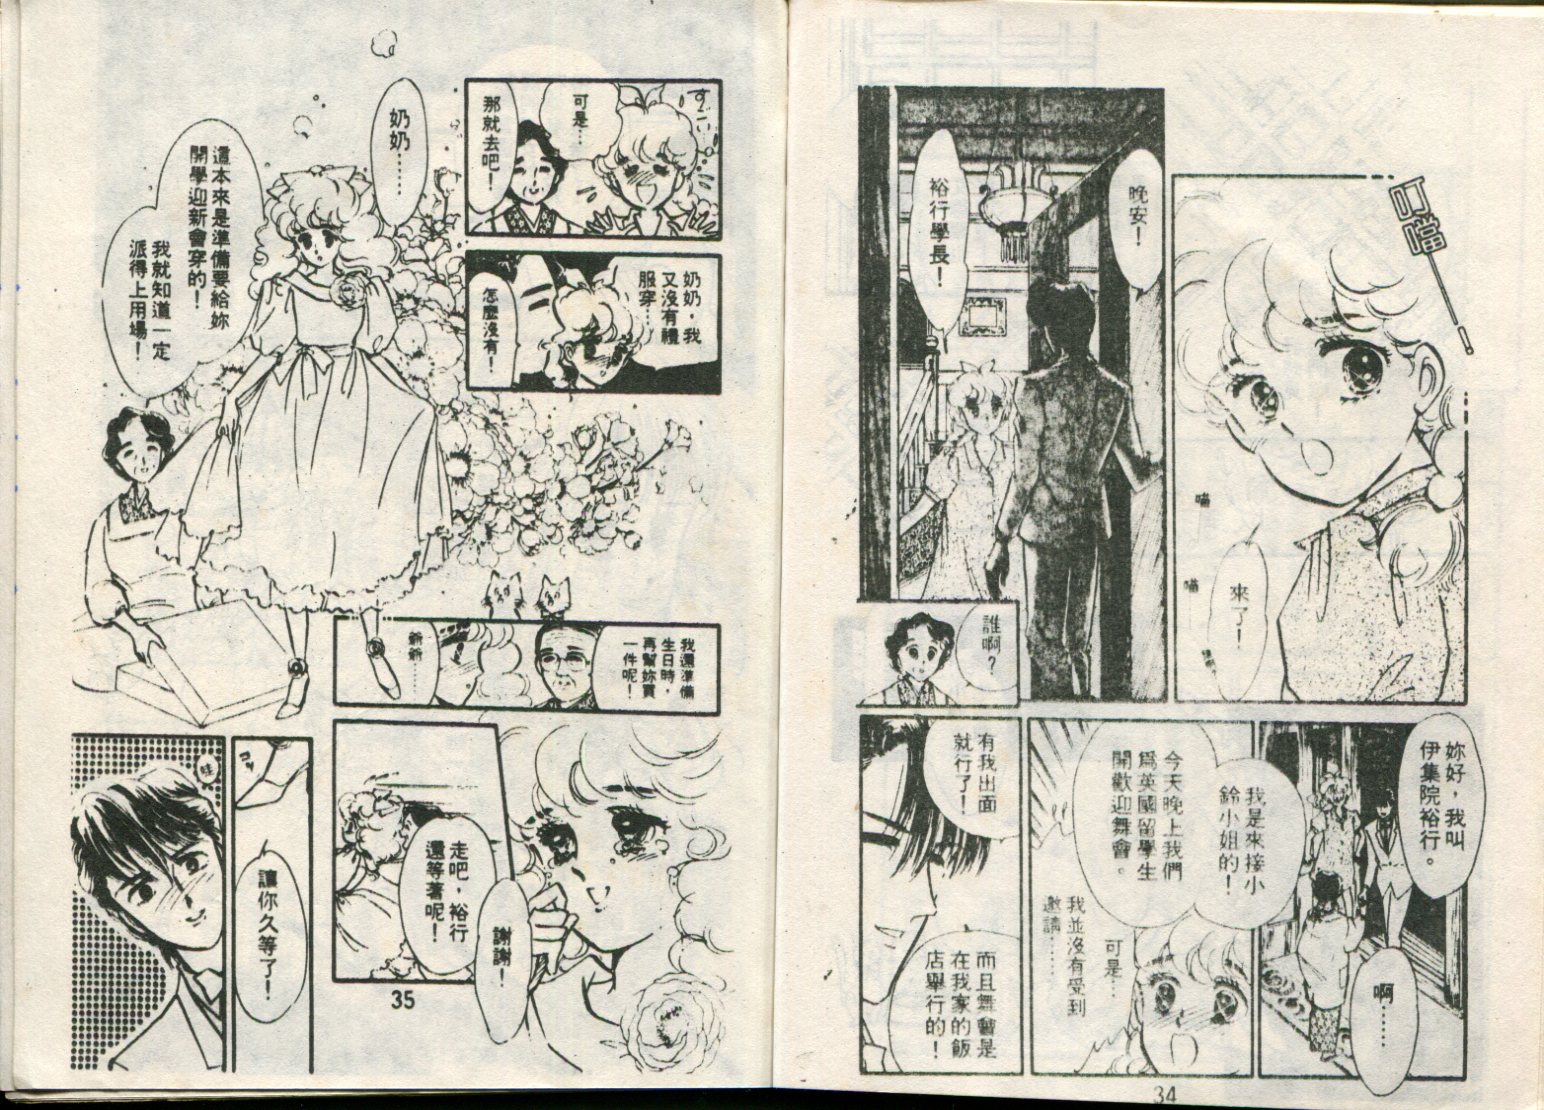 叮噹
喵
來了！
喵
晚安！
裕行學長！
誰啊？
妳好，我叫
伊集院裕行。
啊……
我是來接小
鈴小姐的！
今天晚上我們
為英國留學生
開歡迎舞會。
可是…
我並沒有受到
邀請……
有我出面
就行了！
而且舞會是
在我家的飯
店舉行的！
34
可是…
那就去吧！
奶奶，我
又沒有禮
服穿…
怎麼沒有！
奶奶……
這本來是準備要給妳
開學迎新會穿的！
我就知道一定
派得上用場！
我還準備
生日時，
再幫妳買
一件呢！
謝謝！
走吧，裕行
還等著呢！
讓你久等了！
35